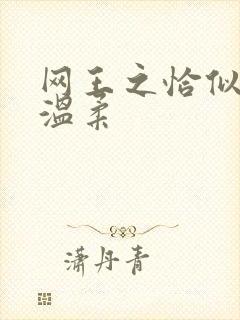 网王之恰似
温柔
潇丹青